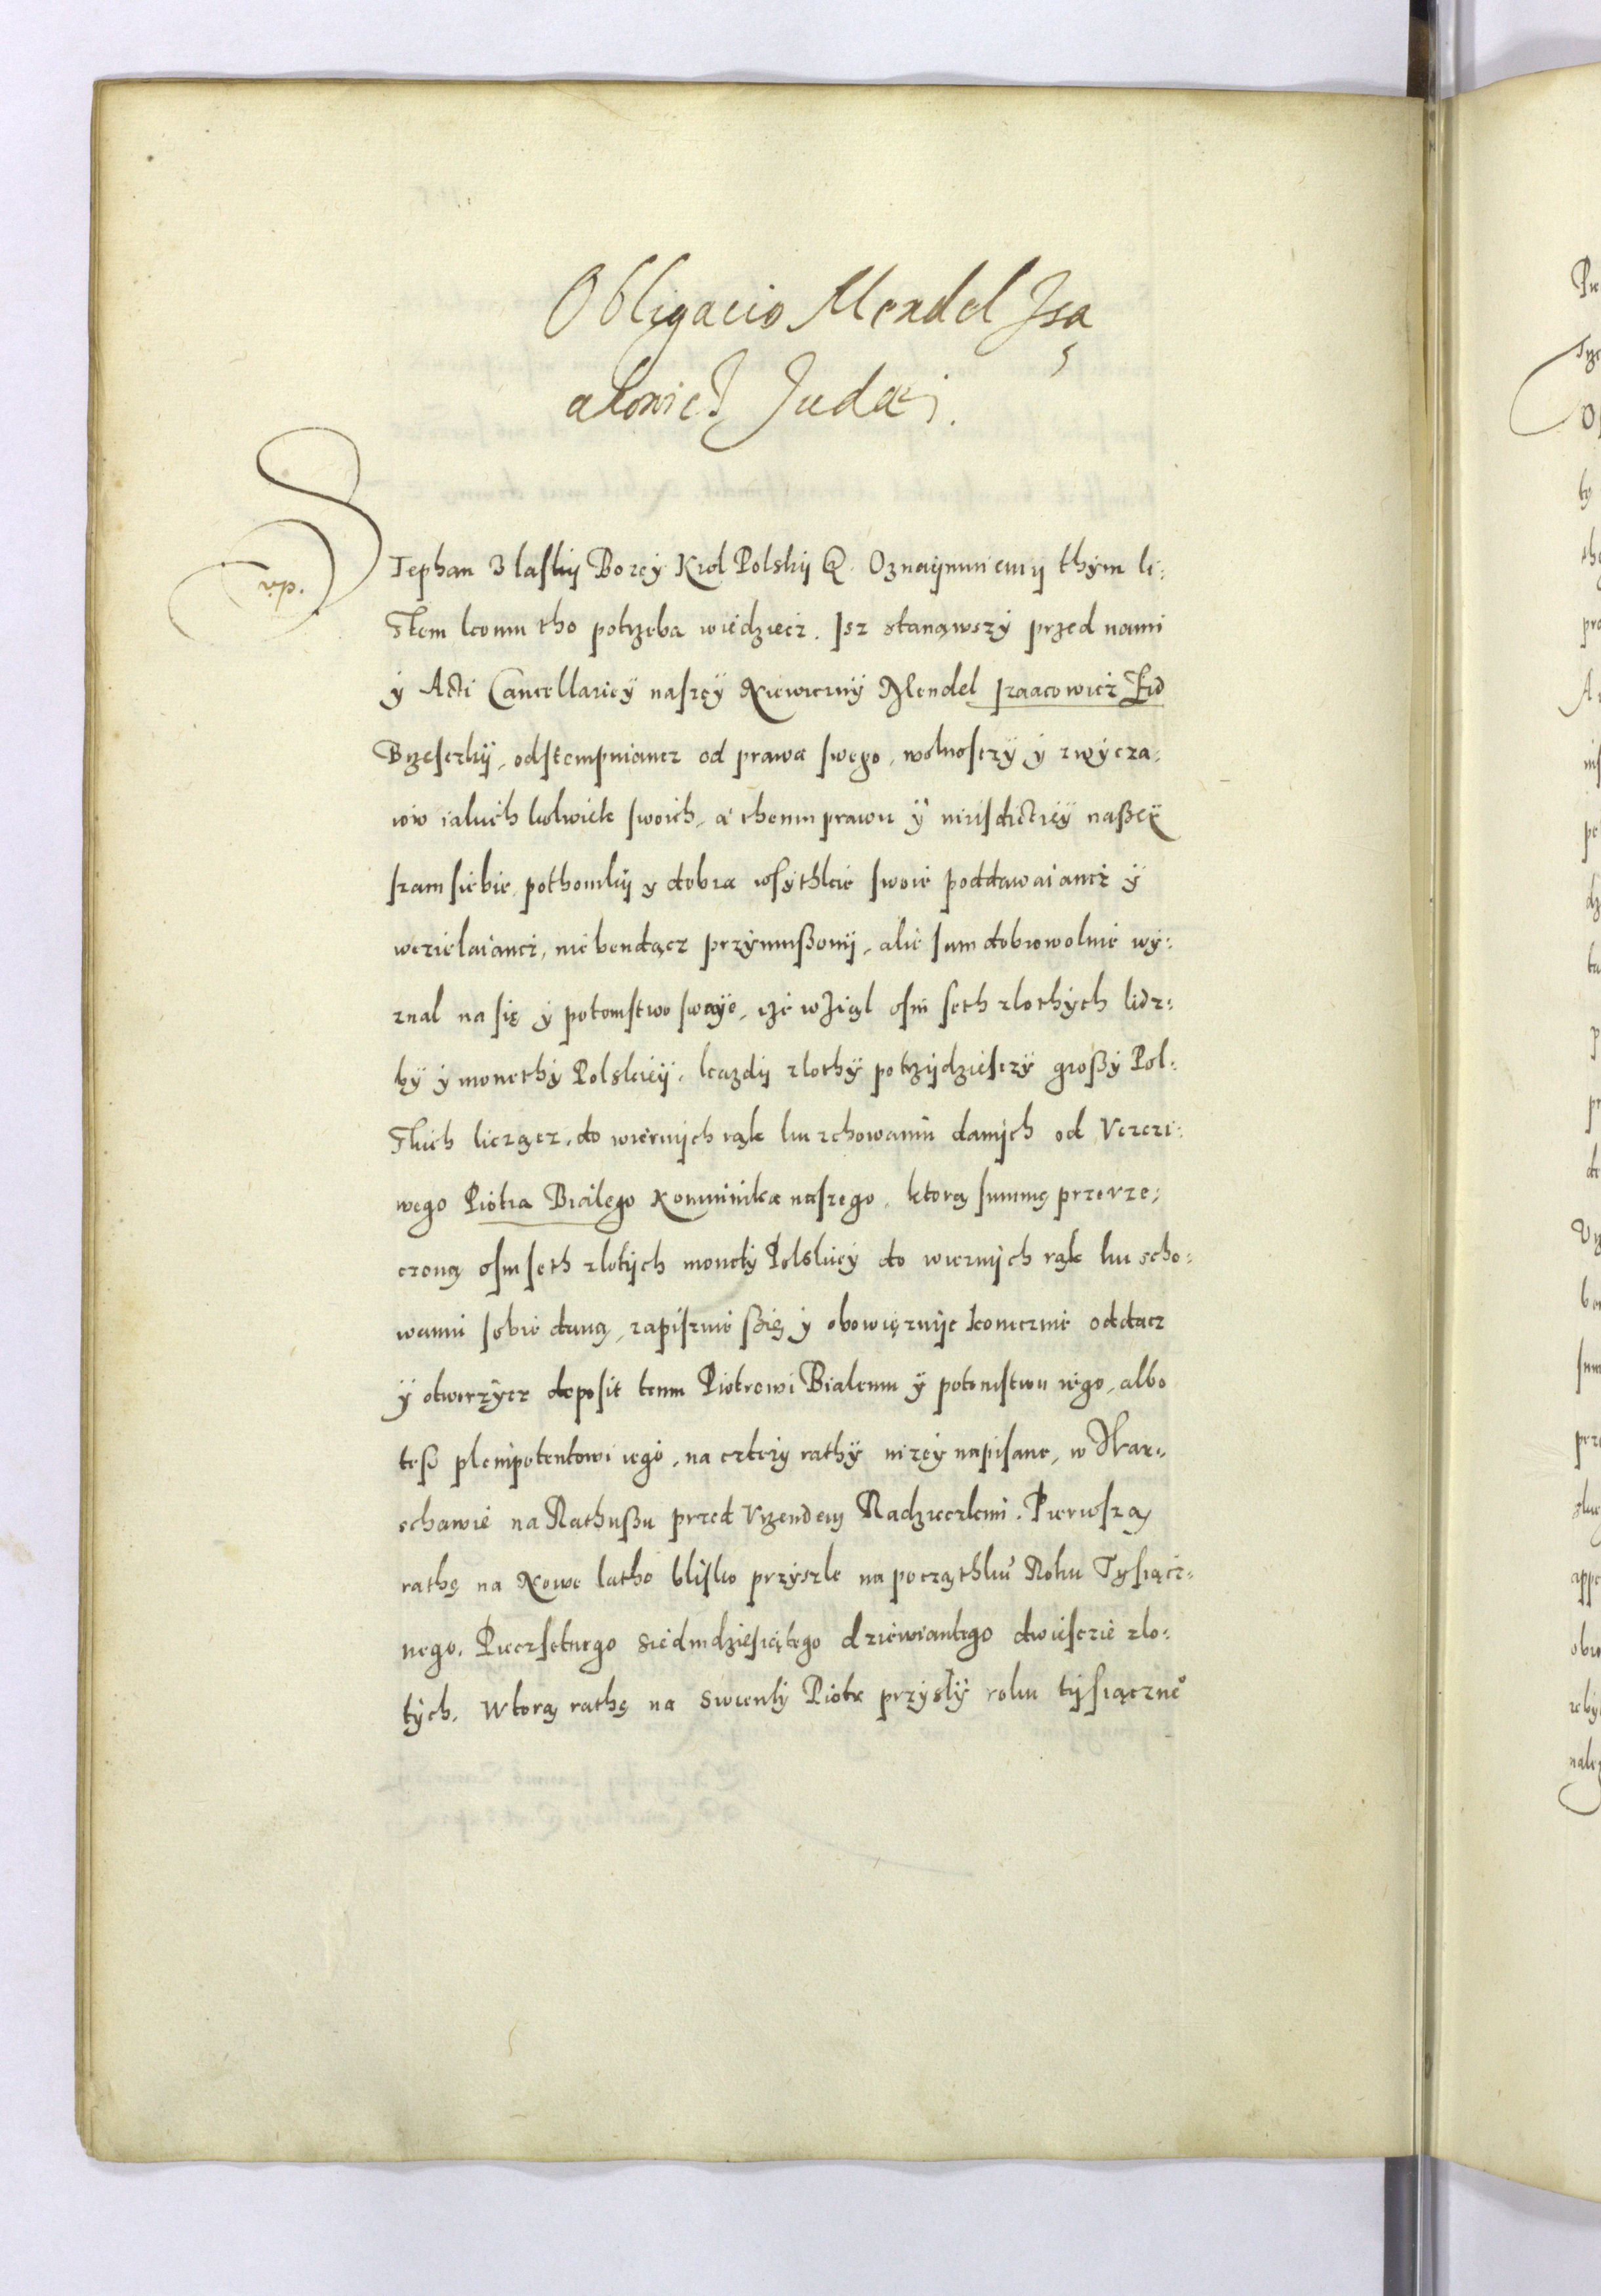 Obligacio Mendel Isa
akowicz Judaei.
Stephan z laskij Bozey Krol Polskij &. Oznaijmuiemij thym li:
stem komu tho potrzeba wiedziecz. Isz stanąwszy przed nami
y Acti Cancellariey naszey Niewierny Mendel Izaacowicz Zid
Brzesczkij, odstempuiancz od prawa swego, wolnosczy y zwycza:
iow iakich kolwiek swoich, a themu prawu y iurisdictiey naszey
szam siebie, pothomkij y dobra wszythkie swoie poddawaiancz y
wczielaiancz, nie bendącz przymuszonij, alie sam dobrowolnie wy:
znal na się y potomstwo swoye, iże wziąl osm seth zlothych lidz:
by y monethy Polskiey, kazdij zlothy po trzijdziesczy groszy Pol:
skich licząncz, do wiernijch rąk ku zchowaniu danijch od Uczczi:
wego Piotra Bialego Komunika naszego, ktorą summę przerze:
czoną osm seth zlotijch monety Polskiey do wiernijch rąk ku scho:
waniu sobie daną, zapisuie szię y obowięzuije koniecznie oddacz
y otworzycz deposit temu Piotrowi Bialemu y potomstwu iego, albo
tesz plenipotentowi iego, na cztery rathy nizey napisane, w War:
schawie na Rathuszu przed Urzendem Radzieczkim. Pierwszą
rathę na Nowe latho blisko przyszle na począthku Roku Tysiącz:
nego, Piecżsetnego siedmdziesiątego dziewiantego dwiesczie zlo:
tych. Wtorą rathę na swienty Piotr przyszly roku tysiączne°